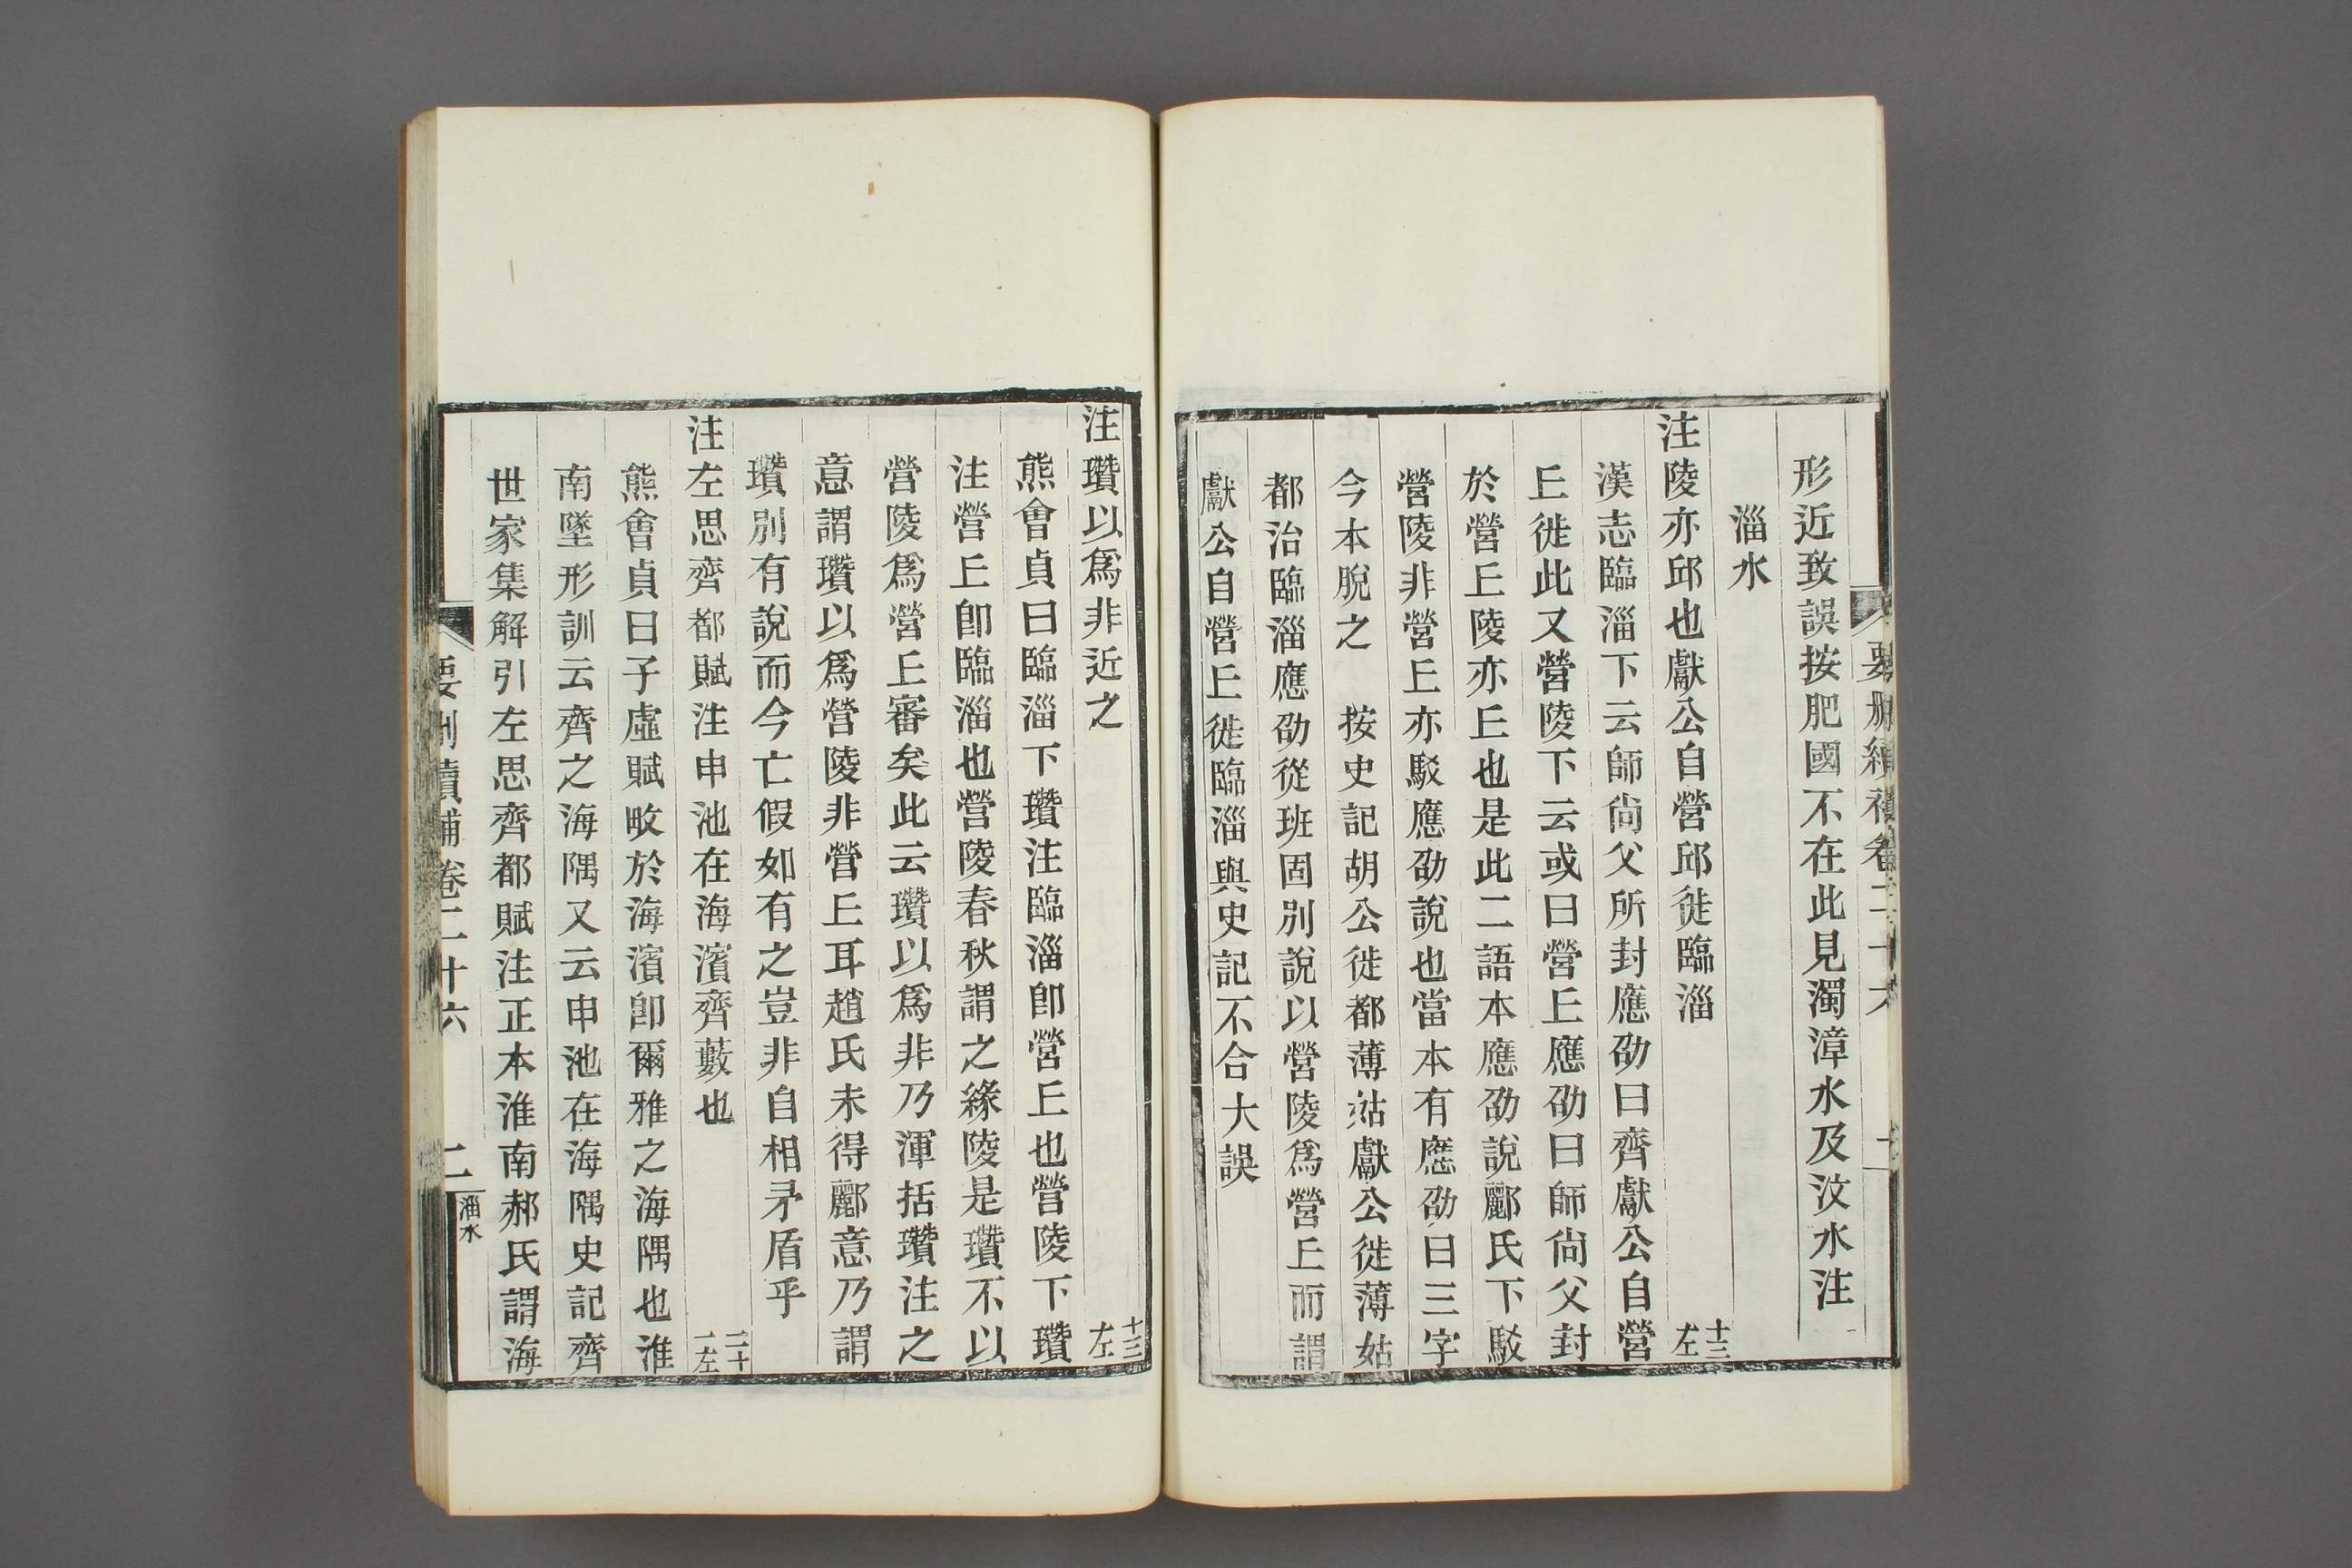 形近致誤按肥國不在此見濁漳水及汶水注
淄水
注陵亦邱也獻公自營邱徙臨淄 十三左
漢志臨淄下云師尙父所封應劭曰齊獻公自營
丘徙此又營陵下云或曰營丘應劭曰師尙父封
於營丘陵亦丘也是此二語本應劭說酈氏下駮
營陵非營丘亦駮應劭說也當本有應劭曰三字
今本脫之 按史記胡公徙都薄姑獻公徙薄姑
都治臨淄應劭從班固別說以營陵爲營丘而謂
獻公自營丘徙臨淄與史記不合大誤
注瓚以爲非近之 十三左
熊會貞曰臨淄下瓚注臨淄卽營丘也營陵下瓚
注營丘卽臨淄也營陵春秋謂之緣陵是瓚不以
營陵爲營丘審矣此云瓚以爲非乃渾括瓚注之
意謂瓚以爲營陵非營丘耳趙氏未得酈意乃謂
瓚別有說而今亡假如有之豈非自相矛盾乎
注左思齊都賦注申池在海濱齊藪也 二十一左
熊會貞曰子虛賦畋於海濱卽爾雅之海隅也淮
南墜形訓云齊之海隅又云申池在海隅史記齊
世家集解引左思齊都賦注正本淮南郝氏謂海
要刪續補卷二十六 二 淄水